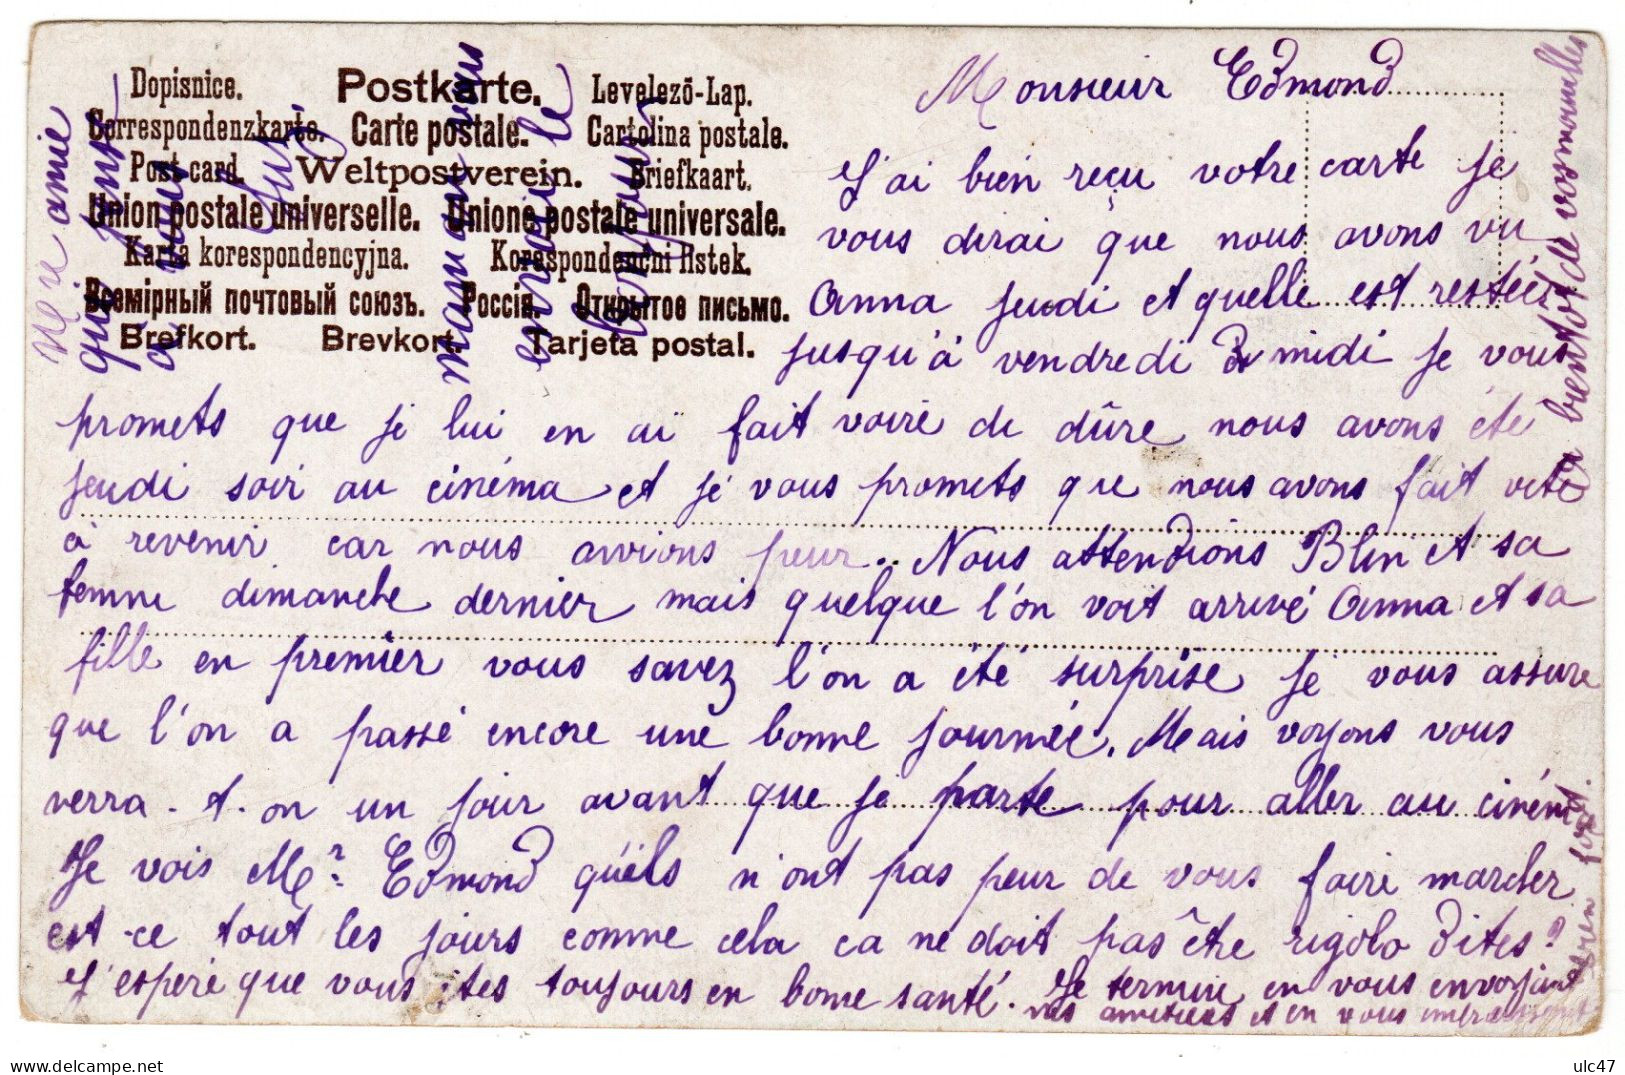 Dopisnice. Postkarte. Levelező-Lap.
Correspondenzkarte. Carte postale. Cartolina postale.
Post card. Weltpostverein. Briefkaart.
Union postale universelle. Unione postale universale.
Karta korespondencyjna. Korespondenčni listek.
Всемірный почтовый союзъ. Россія. Открытое письмо.
Brefkort. Brevkort. Tarjeta postal.
Monsieur Edmond
J'ai bien reçu votre carte je
vous dirai que nous avons vu
Anna jeudi et quelle est restée
jusqu'à vendredi midi je vous
promets que je lui en ai fait voire de dûre nous avons été
jeudi soir au cinéma et je vous promets que nous avons fait vite
à revenir car nous avvions peur.. Nous attendions Blin et sa
femme dimanche dernier mais quelque l'on voit arrivé Anna et sa
fille en premier vous savez l'on a été surprise je vous assure
que l'on a passé encore une bonne journée. Mais voyons vous
verra-t-on un jour avant que je parte pour aller au cinéma
Je vois Mr Edmond qu'ils n'ont pas peur de vous faire marcher
est-ce tout les jours comme cela ca ne doit pas être rigolo dites?
J'espère que vous êtes toujours en bonne santé. Je termine en vous envoyant
nos amitiées et en vous embrassant
bien fort.
A bientôt de vos nouvelles
Mr
amie
qui
a vous
Suz
maman
le
bonjour
ulc47